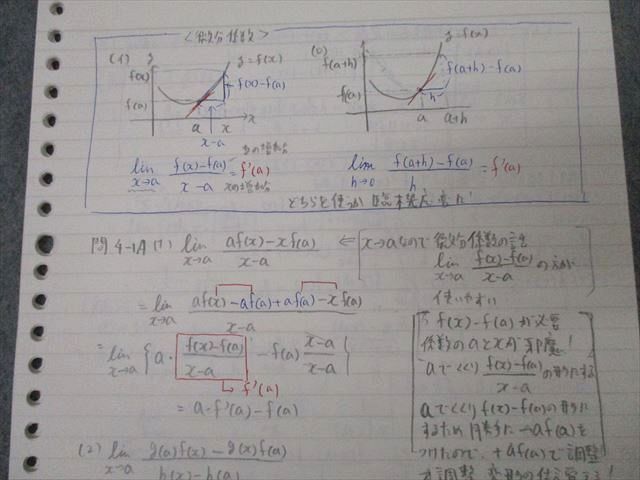 <微分係数>
(イ) y y=f(x)
f(x) f(x)-f(a)
f(a)
a x x
x-a
(ロ) y=f(x)
f(a+h) f(a+h)-f(a)
f(a) h
a a+h
yの増加分
lim x→a f(x)-f(a) / x-a = f'(a)
xの増加分
lim h→0 f(a+h)-f(a) / h = f'(a)
どちらを使うか臨機応変に!
問4-1A (1) lim x→a af(x)-xf(a) / x-a
⇐ x→aなので 微分係数の
lim x→a f(x)-f(a) / x-a の方が
使いやすい
= lim x→a af(x)-af(a)+af(a)-xf(a) / x-a
= lim x→a { a・ f(x)-f(a) / x-a - f(a) x-a / x-a }
f'(a)
= a・f'(a)-f(a)
f(x)-f(a)が必要
係数のaとxが邪魔!
aでくくり f(x)-f(a) / x-a の形にする
aでくくりf(x)-f(a)の形に
するため勝手に-af(a)を
つけたので、+af(a)で調整
(2) lim x→a g(a)f(x)-g(x)f(a) / h(x)-h(a)